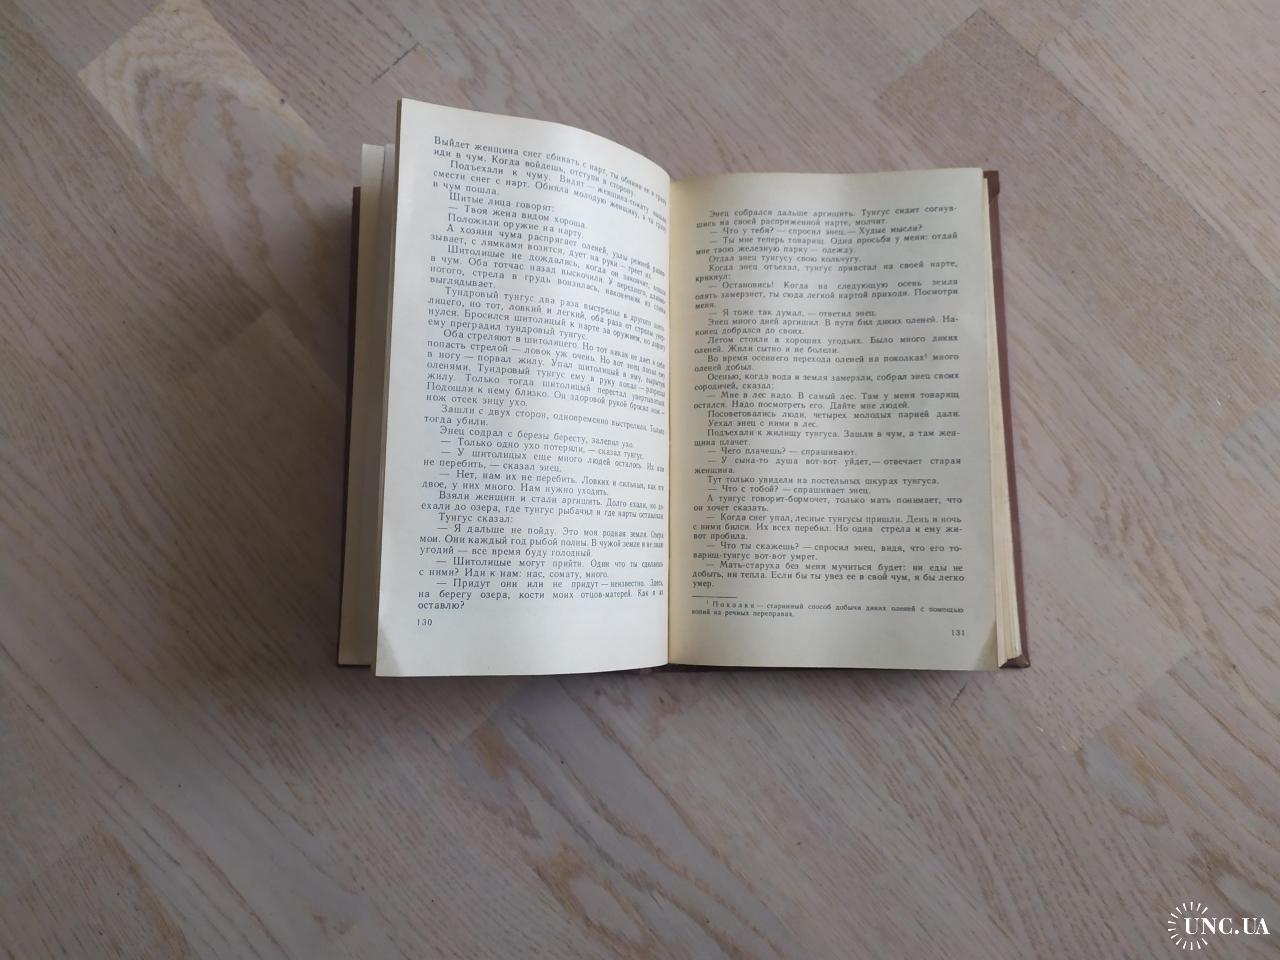 Выйдет женщина снег сбивать с нарт, ты обними ее и сразу
иди в чум. Когда войдешь, отступи в сторону.
Подъехали к чуму. Видят — женщина-сомату вышла
смести снег с нарт. Обняла молодую женщину, а та сразу
в чум пошла.
Шитые лица говорят:
— Твоя жена видом хороша.
Положили оружие на нарту.
А хозяин чума распрягает оленей, узлы ремней развя-
зывает, с лямками возится, дует на руки — греет их.
Шитолицые не дождались, когда он закончит, вошли
в чум. Оба тотчас назад выскочили. У переднего, длинно-
ногого, стрела в грудь вонзилась, наконечник из спины
выглядывает.
Тундровый тунгус два раза выстрелил в другого шито-
лицего, но тот, ловкий и легкий, оба раза от стрелы увер-
нулся. Бросился шитолицый к нарте за оружием, но дорогу
ему преградил тундровый тунгус.
Оба стреляют в шитолицего. Но тот никак не дает в себя
попасть стрелой — ловок уж очень. Но вот энец попал ему
в ногу — порвал жилу. Упал шитолицый в яму, вырытую
оленями. Тундровый тунгус ему в руку попал — разрезал
жилу. Только тогда шитолицый перестал увертываться.
Подошли к нему близко. Он здоровой рукой бросил нож —
нож отсек энцу ухо.
Зашли с двух сторон, одновременно выстрелили. Только
тогда убили.
Энец содрал с березы бересту, залепил ухо.
— Только одно ухо потеряли, — сказал тунгус.
— У шитолицых еще много людей осталось. Их нам
не перебить, — сказал энец.
— Нет, нам их не перебить. Ловких и сильных, как эти
двое, у них много. Нам нужно уходить.
Взяли женщин и стали аргишить. Долго ехали, но до-
ехали до озера, где тунгус рыбачил и где нарты оставили.
Тунгус сказал:
— Я дальше не пойду. Это моя родная земля. Озера
мои. Они каждый год рыбой полны. В чужой земле я не знаю
угодий — все время буду голодный.
— Шитолицые могут прийти. Один что ты сделаешь
с ними? Иди к нам: нас, сомату, много.
— Придут они или не придут — неизвестно. Здесь,
на берегу озера, кости моих отцов-матерей. Как я их
оставлю?
130
Энец собрался дальше аргишить. Тунгус сидит согнув-
шись на своей распряженной нарте, молчит.
— Что у тебя? — спросил энец. — Худые мысли?
— Ты мне теперь товарищ. Одна просьба у меня: отдай
мне твою железную парку — одежду.
Отдал энец тунгусу свою кольчугу.
Когда энец отъехал, тунгус привстал на своей нарте,
крикнул:
— Остановись! Когда на следующую осень земля
опять замерзнет, ты сюда легкой нартой приходи. Посмотри
меня.
— Я тоже так думал, — ответил энец.
Энец много дней аргишил. В пути бил диких оленей. На-
конец добрался до своих.
Летом стояли в хороших угодьях. Было много диких
оленей. Жили сытно и не болели.
Во время осеннего перехода оленей на поколках¹ много
оленей добыл.
Осенью, когда вода и земля замерзли, собрал энец своих
сородичей, сказал:
— Мне в лес надо. В самый лес. Там у меня товарищ
остался. Надо посмотреть его. Дайте мне людей.
Посоветовались люди, четырех молодых парней дали.
Уехал энец с ними в лес.
Подъехали к жилищу тунгуса. Зашли в чум, а там жен-
щина плачет.
— Чего плачешь? — спрашивают.
— У сына-то душа вот-вот уйдет, — отвечает старая
женщина.
Тут только увидели на постельных шкурах тунгуса.
— Что с тобой? — спрашивает энец.
А тунгус говорит-бормочет, только мать понимает, что
он хочет сказать.
— Когда снег упал, лесные тунгусы пришли. День и ночь
с ними бился. Их всех перебил. Но одна стрела и ему жи-
вот пробила.
— Что ты скажешь? — спросил энец, видя, что его то-
варищ-тунгус вот-вот умрет.
— Мать-старуха без меня мучиться будет: ни еды не
добыть, ни тепла. Если бы ты увез ее в свой чум, я бы легко
умер.
¹ Поколки — старинный способ добычи диких оленей с помощью
копий на речных переправах.
131
UNC.UA